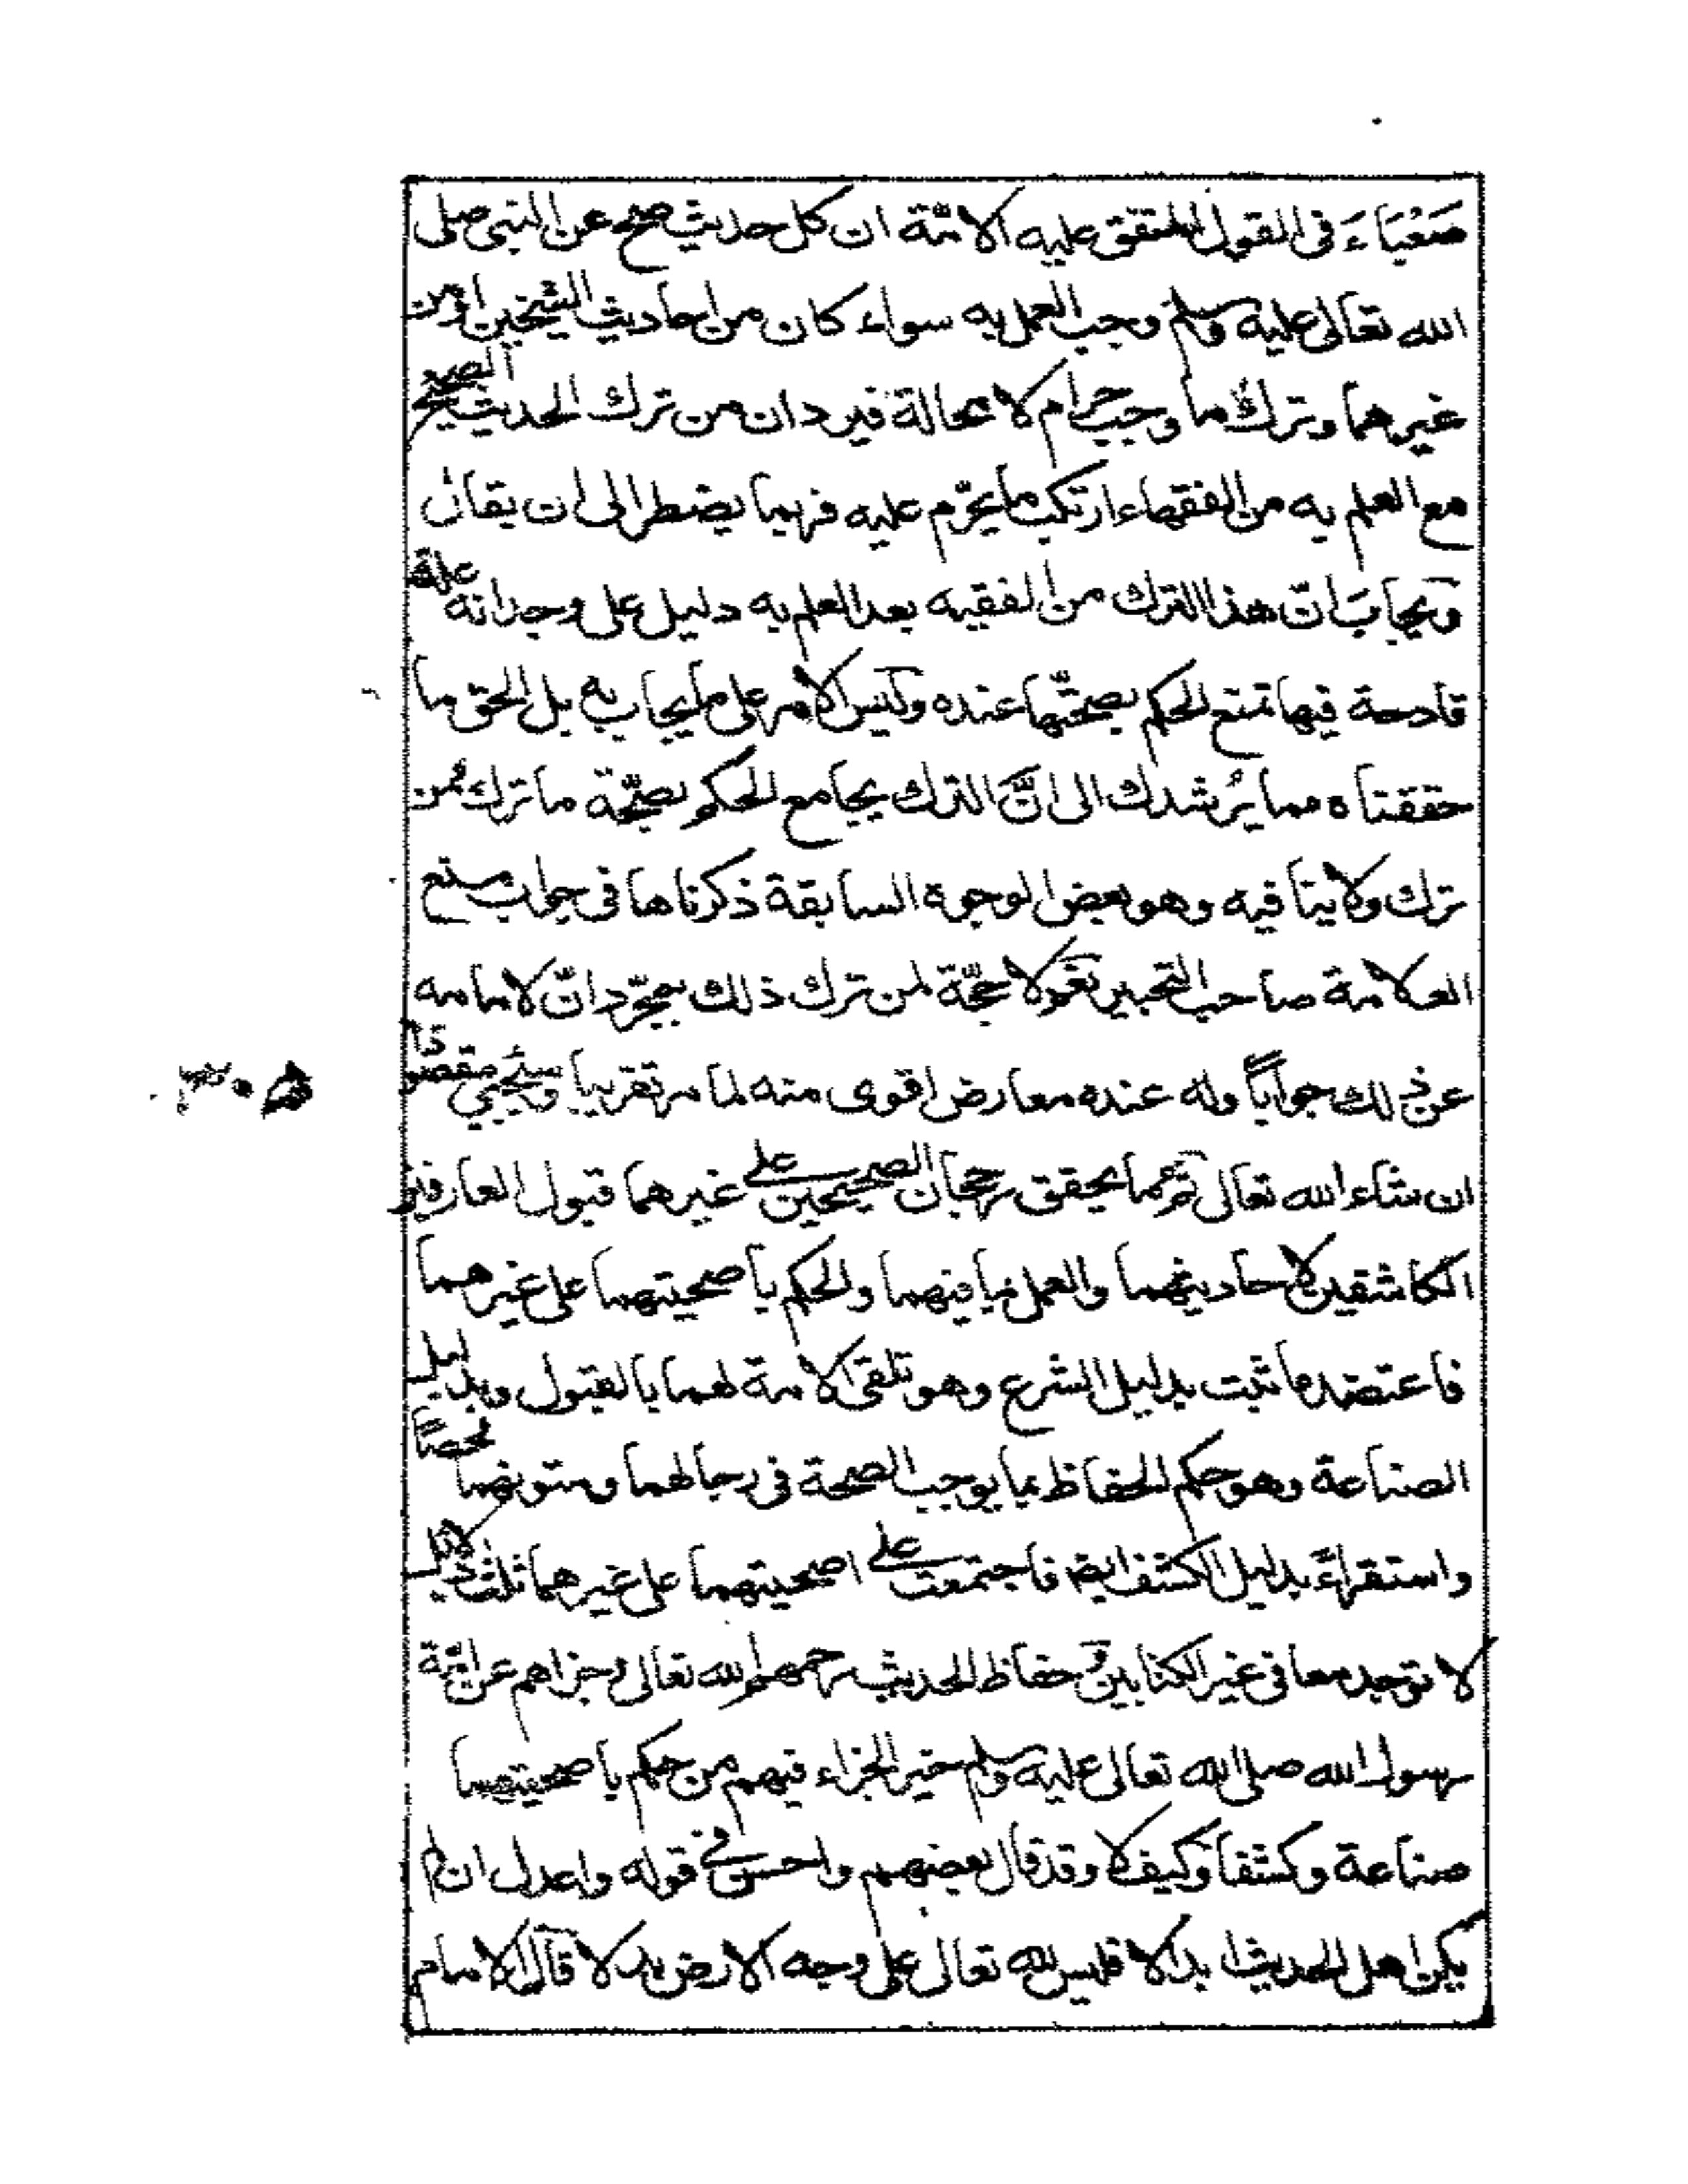 في القول المتفق عليه الائمة ان كل حديث صح عن النبي صلى
الله تعالى عليه وسلم وجب العمل به سواء كان من احاديث الشيخين او من
غيرهما وترك ما وجب حرام لا محالة فيرد ان من ترك الحديث الصحيح
مع العلم به من الفقهاء ارتكب ما يحرم عليه فربما يضطر الى ان يقال
ويجاب ان هذا الترك من الفقيه بعد العلم به دليل على وجدانه علة
قادحة فيها تمنع الحكم بصحتها عنده وليس الامر على ما يجاب به بل الحق ما
حققناه مما يرشدك الى ان الترك يجامع الحكم بصحة ما ترك ممن
ترك ولا ينافيه وهو بعض الوجوه السابقة ذكرناها في جواب منع
العلامة صاحب التحبير نعم ولا حجة لمن ترك ذلك بمجرد ان لامامه
عن ذلك جوابا وله عنده معارض اقوى منه لما مر تقريبا وسيجيئ
ان شاء الله تعالى ثم مما يحقق رجحان الصحيحين على غيرهما قبول العارفين
الكاشفين لاحاديثهما والعمل بما فيهما والحكم باصحيتهما على غيرهما
فاعتضد ما ثبت بدليل الشرع وهو تلقى الامة لهما بالقبول وبدليل
الصناعة وهو حكم الحفاظ بما يوجب الصحة في رجالهما ومتونهما فحصا
واستقراء بدليل الكشف ايضا فاجتمعت على اصحيتهما على غيرهما ثلث دلائل
لا توجد معا في غير الكتابين و حفاظ الحديث رحمهم الله تعالى وجزاهم عن امة
رسول الله صلى الله تعالى عليه وسلم خير الجزاء فيهم من حكم باصحيتهما
صناعة وكشفا وكيف لا وقد قال بعضهم واحسن في قوله واعدل ان لم
يكن اهل الحديث ابدالا فليس لله تعالى على وجه الارض بدلا قال الامام